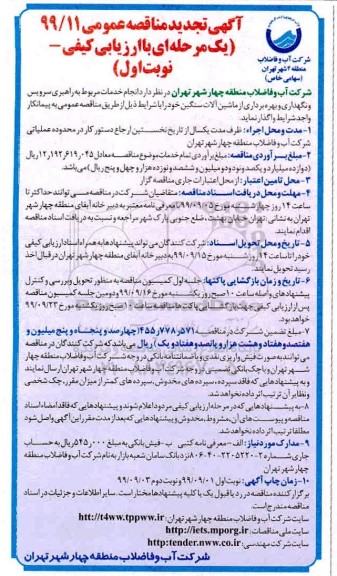 آگهی تجدید مناقصه عمومی ۹۹/۱۱
(یک مرحله‌ای با ارزیابی کیفی –
نوبت اول)
شرکت آب و فاضلاب
منطقه ۴ شهر تهران
(سهامی خاص)
شرکت آب و فاضلاب منطقه چهار شهر تهران در نظر دارد انجام خدمات مربوط به راهبری سرویس
و نگهداری و بهره‌برداری از ماشین آلات سنگین خود را با شرایط ذیل از طریق مناقصه عمومی به پیمانکار
واجد شرایط واگذار نماید.
۱- مدت و محل اجراء: ظرف مدت یکسال از تاریخ نخستین ارجاع دستور کار در محدوده عملیاتی
شرکت آب و فاضلاب منطقه چهار شهر تهران
۲- مبلغ برآوردی مناقصه: مبلغ برآوردی تمام خدمات موضوع مناقصه معادل ۱۲٫۱۹۲٫۶۱۹٫۰۴۵ ریال
(دوازده میلیارد و یکصد و نود و دو میلیون و ششصد و نوزده هزار و چهل و پنج ریال) می‌باشد.
۳- محل تامین اعتبار: از محل اعتبارات جاری مناقصه گزار
۴- مهلت و محل دریافت اسناد مناقصه: متقاضیان شرکت در مناقصه می توانند حداکثر تا
ساعت ۱۴ روز چهارشنبه مورخ ۹۹/۰۹/۰۵ با معرفی نامه معتبر به دبیرخانه آبفای منطقه چهار شهر
تهران به نشانی: تهران، خیابان بهشت، ضلع جنوبی پارک شهر مراجعه و نسبت به دریافت اسناد مناقصه
اقدام نمایند.
۵- تاریخ و محل تحویل اسناد: شرکت کنندگان می تواند پیشنهادها به همراه اسناد ارزیابی کیفی
خود را تا ساعت ۱۴ روز شنبه مورخ ۹۹/۰۹/۱۵ به دبیرخانه آبفای منطقه چهار شهر تهران در قبال اخذ
رسید تحویل نمایند.
۶- تاریخ و زمان بازگشایی پاکتها: جلسه اول کمیسیون مناقصه به منظور تحویل و بررسی و کنترل
پیشنهادهای واصله ساعت ۱۰ صبح روز یکشنبه مورخ ۹۹/۰۹/۱۶ و دومین جلسه کمیسیون مناقصه
پس از ارزیابی کیفی جهت بازگشایی پاکت‌ها مناقصه ساعت ۱۰ صبح روز یکشنبه مورخ ۹۹/۰۹/۲۳
خواهد بود.
۷- مبلغ تضمین شرکت در مناقصه: ۴۵۵٫۷۷۸٫۵۷۱ (چهارصد و پنجاه و پنج میلیون و
هفتصد و هفتاد و هشت هزار و پانصد و هفتاد و یک) ریال می باشد که شرکت کنندگان در مناقصه
می توانند به صورت فیش واریزی نقدی و یا ضمانتنامه بانکی در وجه شرکت آب و فاضلاب منطقه چهار
شهر تهران و یا چک بانکی تضمینی در وجه شرکت آب و فاضلاب منطقه چهار شهر تهران ارسال نمایند
و به پیشنهادهایی که فاقد سپرده، سپرده های مخدوش، سپرده های کمتر از میزان مقرر، چک شخصی
و نظایر آن ترتیب اثر داده نخواهد شد.
۸- به پیشنهادهایی که در مرحله ارزیابی کیفی مردود اعلام شوند و پیشنهادهایی که فاقد امضاء اسناد
مناقصه و پیوست های آن، مشروط، مخدوش و پیشنهادهایی که بعد از مدت مقرر این آگهی واصل شود
مطلقا ترتیب اثر داده نخواهد شد.
۹- مدارک مورد نیاز: الف- معرفی نامه کتبی ب- فیش بانکی به مبلغ ۵۴۵٫۰۰۰ ریال به حساب
چهار شهر تهران
۱۰- زمان چاپ آگهی: نوبت اول ۹۹/۰۹/۰۱ و نوبت دوم ۹۹/۰۹/۰۳
برگزار کننده مناقصه در رد یا قبول یک یا کلیه پیشنهادها مختار است. سایر اطلاعات و جزئیات در اسناد
مناقصه مندرج است.
سایت شرکت آب و فاضلاب منطقه چهار شهر تهران: htt://t4ww.tppww.ir
سایت ملی مناقصات: http://iets.mporg.ir
سایت شرکت مهندسی: http:/tender.nww.co.ir
شرکت آب و فاضلاب منطقه چهار شهر تهران